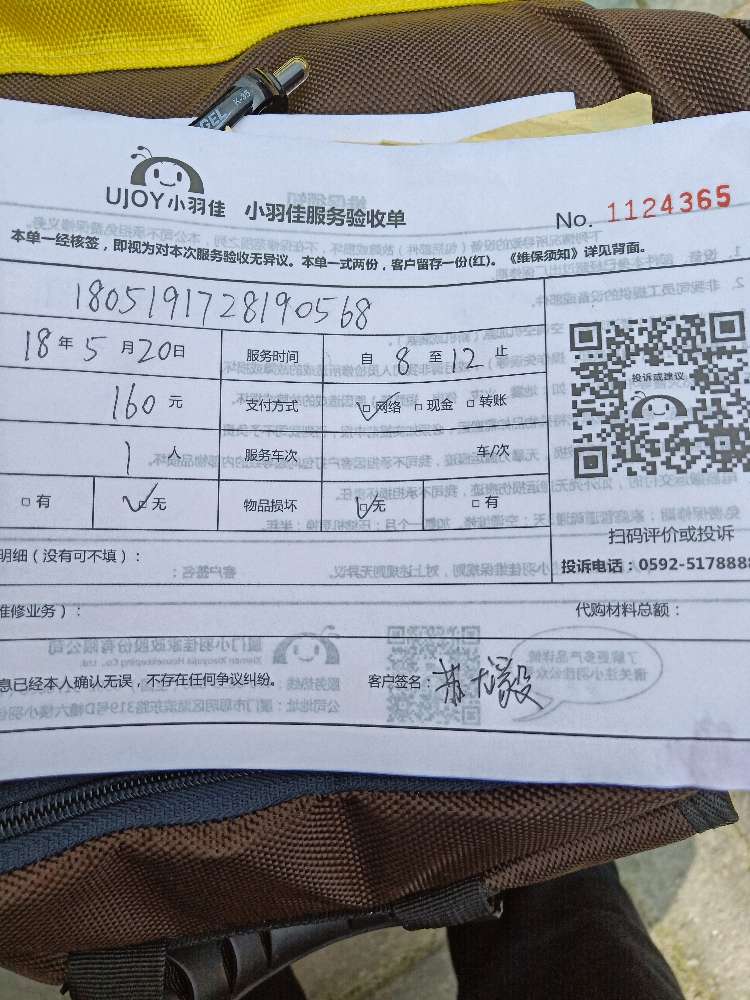 GEL K-35
UJOY小羽佳 小羽佳服务验收单
No. 1124365
本单一经核签,即视为对本次服务验收无异议。本单一式两份,客户留存一份(红)。《维保须知》详见背面。
1805191728190568
18年5月20日 服务时间 自8至12止
160元 支付方式 ☑网络 □现金 □转账
1人 服务车次 车/次
□有 ☑无 物品损坏 ☑无 □有
投诉或建议
扫码评价或投诉
投诉电话:0592-5178888
明细(没有可不填):
维修业务): 代购材料总额:
息已经本人确认无误,不存在任何争议纠纷。 客户签名: